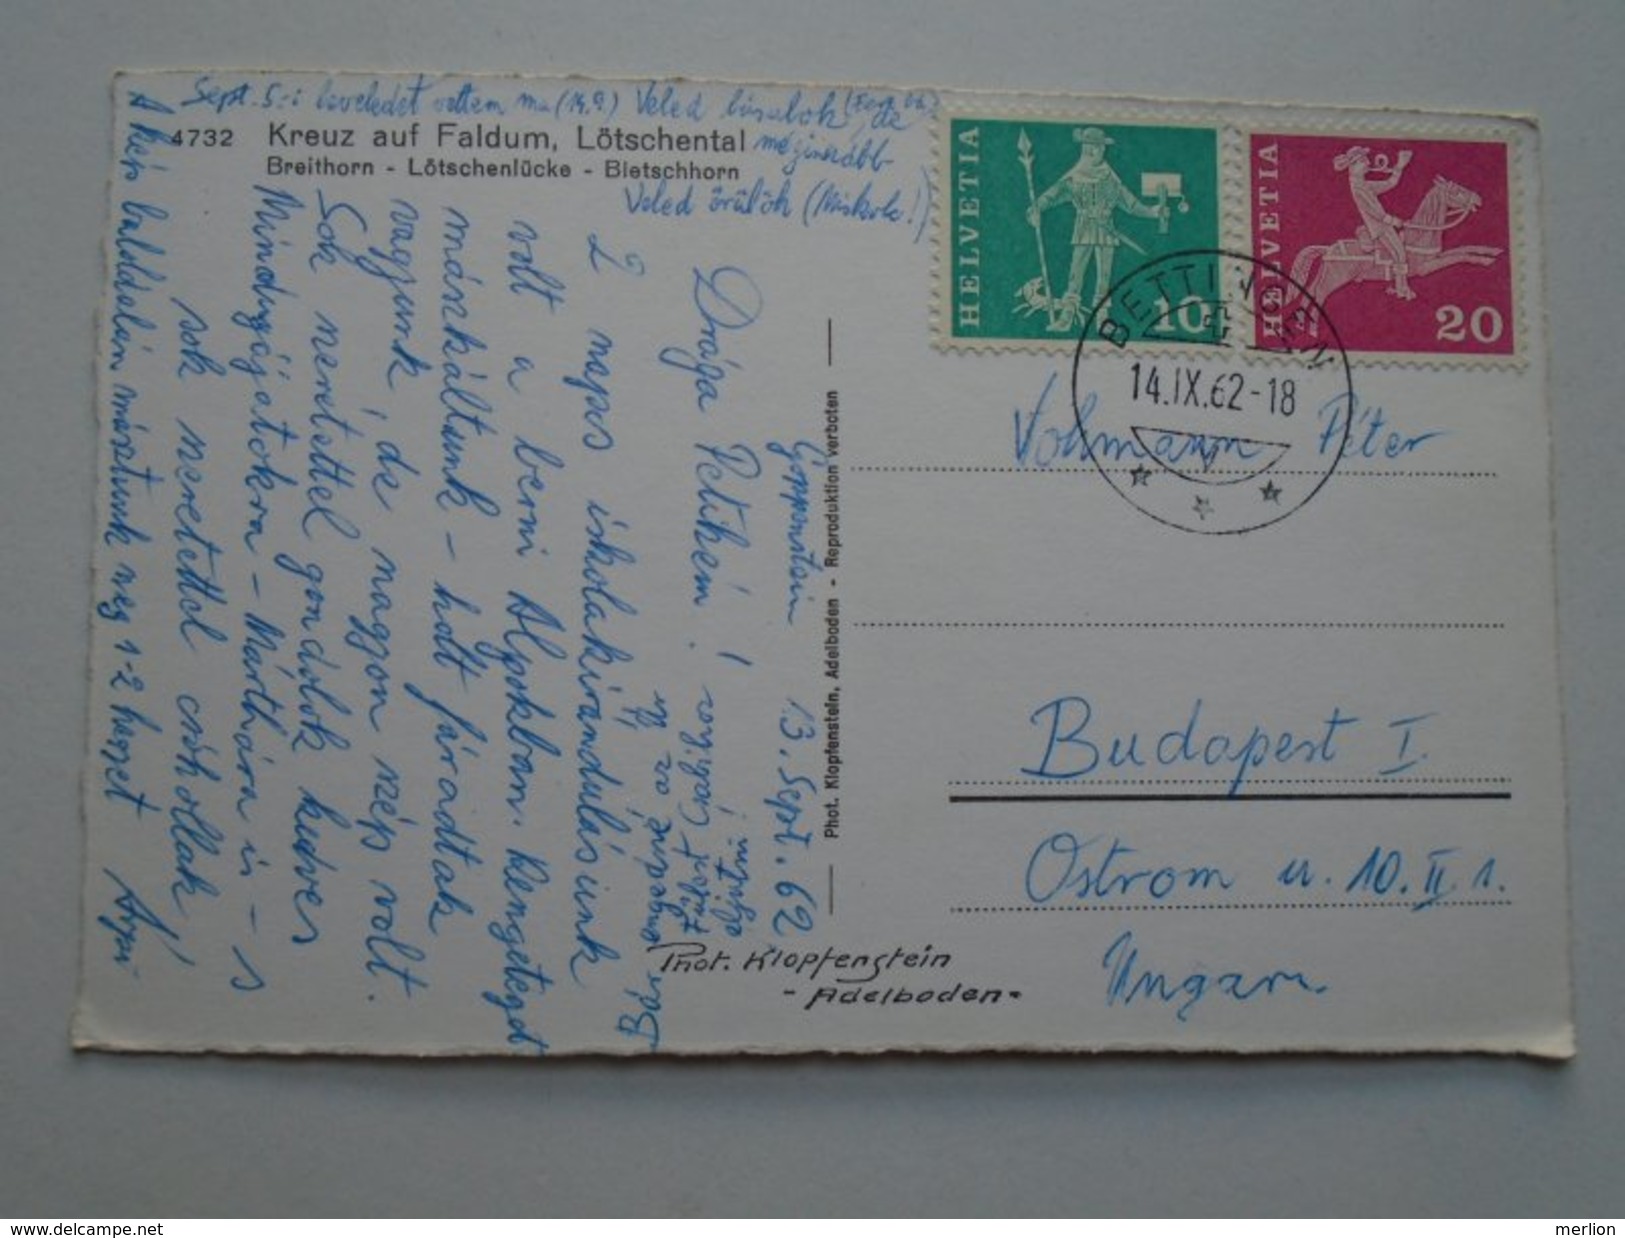 Sept. 5.-i leveledet vettem ma (14.9.) Veled búsulok, de
méginkább
Veled örülök (Miskolc!)
4732 Kreuz auf Faldum, Lötschental
Breithorn - Lötschenlücke - Bietschhorn
Goppenstein 13. Sept. 62
Drága Petikém!
2 napos iskolakirándulásunk
volt a berni Alpokban. Rengeteget
mászkáltunk - holt fáradtak
vagyunk, de nagyon szép volt.
Sok szeretettel gondolok kedves
Mindnyájatokra - Márthára is - s
sok szeretettel csókollak!
A kép baloldalán másztunk meg 1-2 hegyet
Phot. Klopfenstein, Adelboden - Reproduktion verboten
Phot. Klopfenstein
- Adelboden -
HELVETIA
10
HELVETIA
20
BETTINGEN
14.IX.62-18
Vohmann Péter
Budapest I.
Ostrom u. 10. II. 1.
Ungarn
delcampe.net
merlion